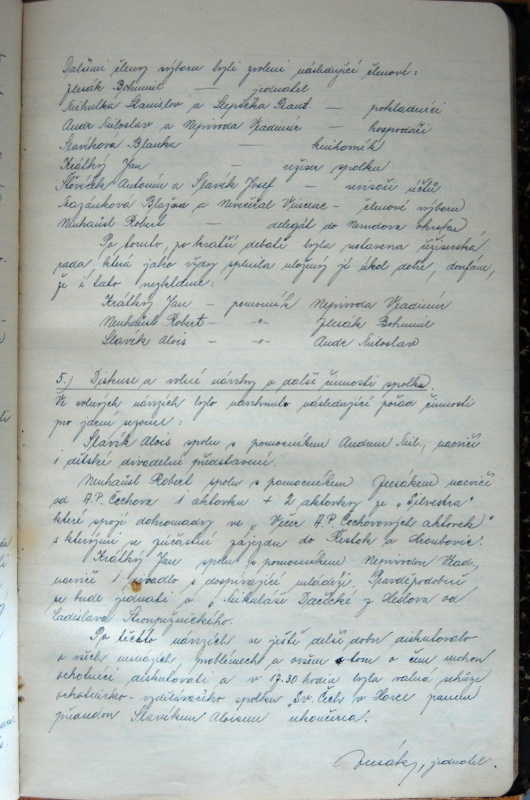 Dalšími členy výboru byli zvoleni následující členové:
Jusák Bohumil — jednatel
Mihulka Stanislav a Slepička Frant. — pokladníci
Andr Miloslav a Neprivoda Vladimír — hospodáři
Slavíková Blanka — knihovník
Krátký Jan — režiser spolku
Slavík Josef — revisoři účtů
a Vincenc — členové výboru
Neuhäusl Robert — delegát do okrsku
Po tomto, po kratší debatě byla ustavena režisérská
rada, která jako vždy splnila uložený jí úkol dobře, doufáme,
že i tato nezklame:
Krátký Jan — pomocník Neprivoda Vladimír
Neuhäusl Robert — -"- Jusák Bohumil
Slavík Alois — -"- Andr Miloslav
5.) Diskuse a volné návrhy o další činnosti spolku.
Ve volných návrzích bylo navrhnuto následující pořad činnosti
pro jdení sezone:
Slavík Alois spolu s pomocníkem Andrem Mil., nacvičí
1 dětské divadelní představení.
Neuhäusl Robert spolu s pomocníkem Jusákem nacvičí
od A.P. Čechova 1 aktovku + 2 aktovky ze „Silvestra"
které spojí dohromady ve „Večer A.P. Čechovových aktovek"
s kterými se zúčastní zájezdu do Řestok a Hroubovic.
Krátký Jan spolu s pomocníkem Neprivodou Vlad.,
nacvičí 1 divadlo s dospívající mládeží. Pravděpodobně
se bude jednati o „Mikuláše Dačické z Heslova od
Ladislava Stroupežnického.
Po těchto návrzích se ještě delší dobu diskutovalo
o všech nesnázích, problémech a ovšem o tom o čem mohou
ochotníci diskutovati a v 17.30 hodin byla valná schůze
ochotnicko-vzdělávacího spolku „Sv. Čech v Horce panem
předsedou Slavíkem Aloisem ukončena.
Jusák, jednatel.